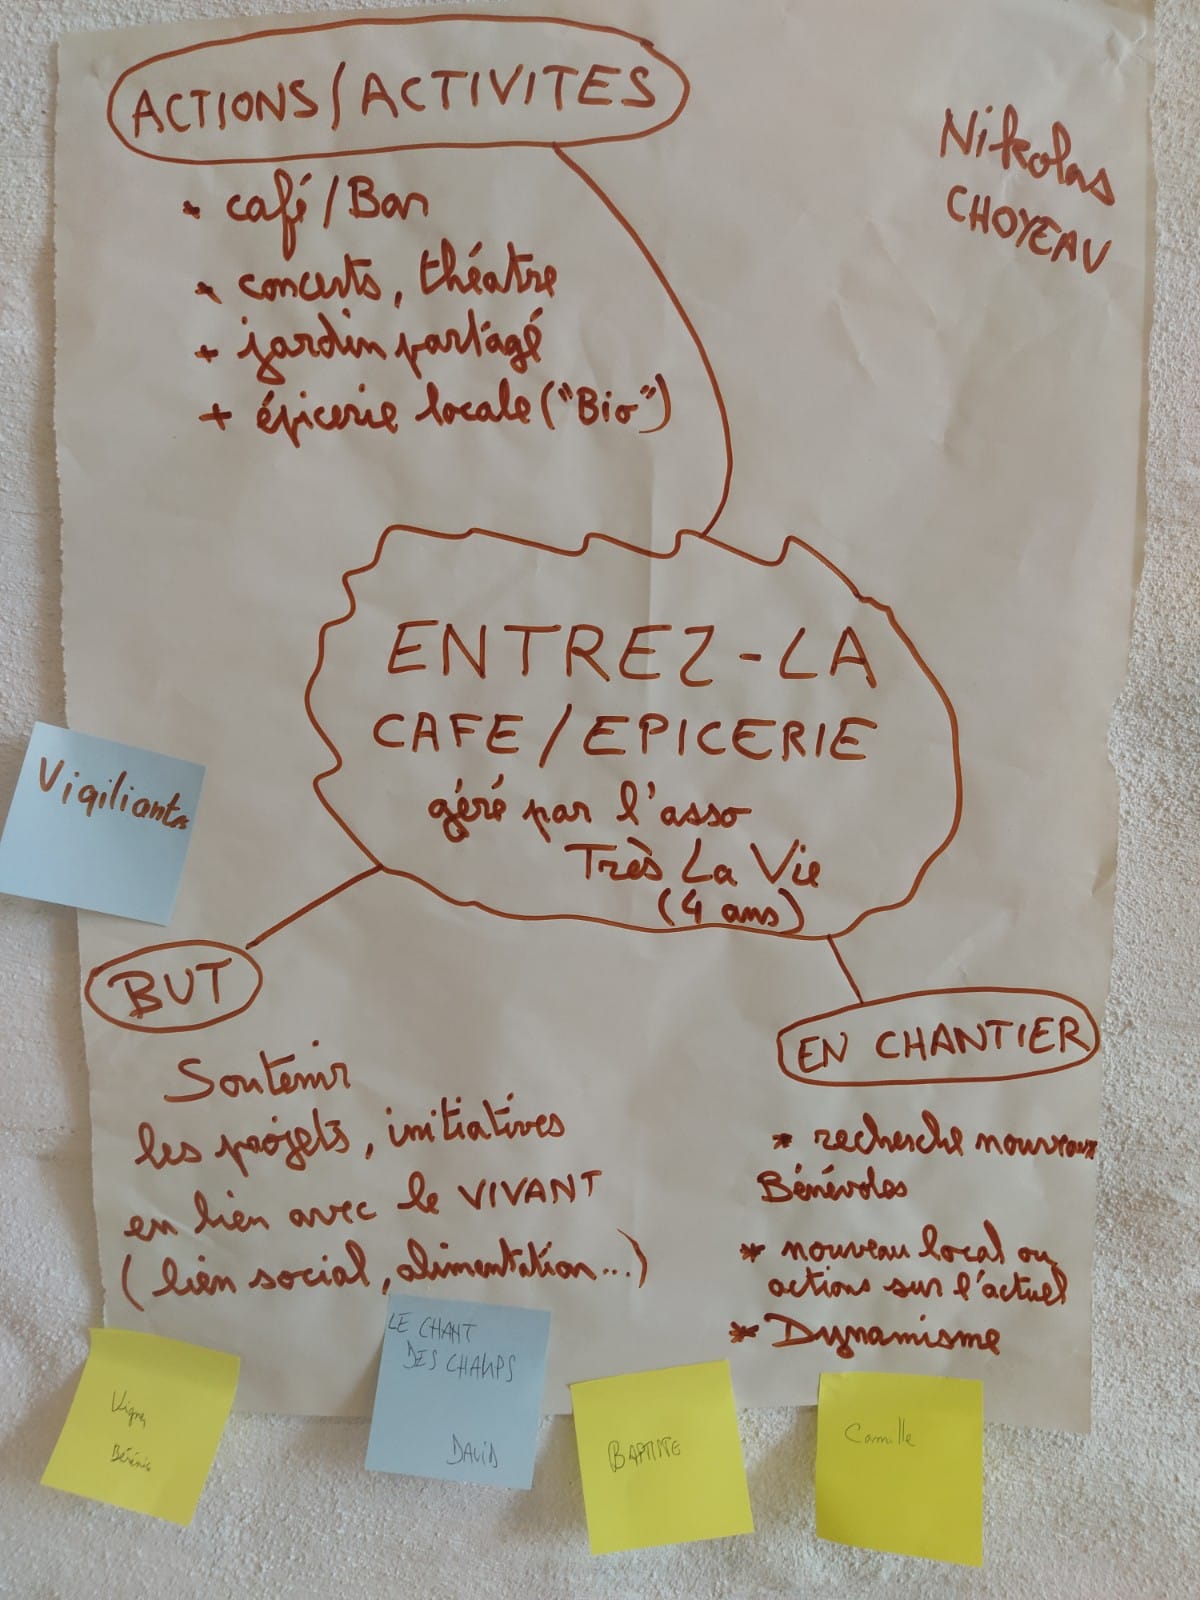 ACTIONS/ACTIVITES
Nikolas
CHOYEAU
* café/Bar
* concerts, théatre
+ jardin partagé
+ épicerie locale ("Bio")
ENTREZ-LA
CAFE/EPICERIE
géré par l'asso
Très La Vie
(4 ans)
Vigiliants
BUT
Soutenir
les projets, initiatives
en lien avec le VIVANT
(lien social, alimentation...)
EN CHANTIER
* recherche nouveaux
Bénévoles
* nouveau local ou
actions sur l'actuel
* Dynamisme
LE CHANT
DES CHAMPS
DAVID
BAPTISTE
Camille